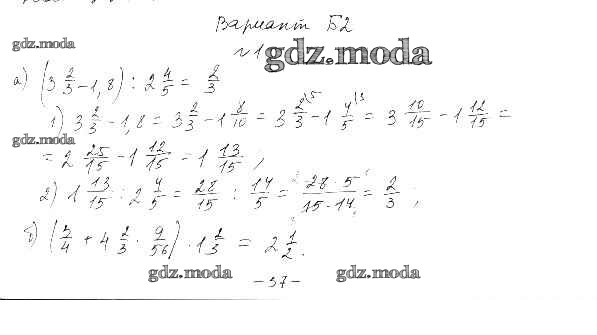 Вариант Б2
gdz.moda
№1 gdz.moda
а) (3 2/3 - 1,8) : 2 4/5 = 2/3
1) 3 2/3 - 1,8 = 3 2/3 - 1 8/10 = 3 2\5/3 - 1 4\3/5 = 3 10/15 - 1 12/15 =
gdz.moda
= 2 25/15 - 1 12/15 = 1 13/15 ;
2) 1 13/15 : 2 4/5 = 28/15 : 14/5 = 28·5/15·14 = 2/3 ;
б) (3/4 + 4 2/3 · 9/56) · 1 2/3 = 2 1/2.
gdz.moda gdz.moda
-37-